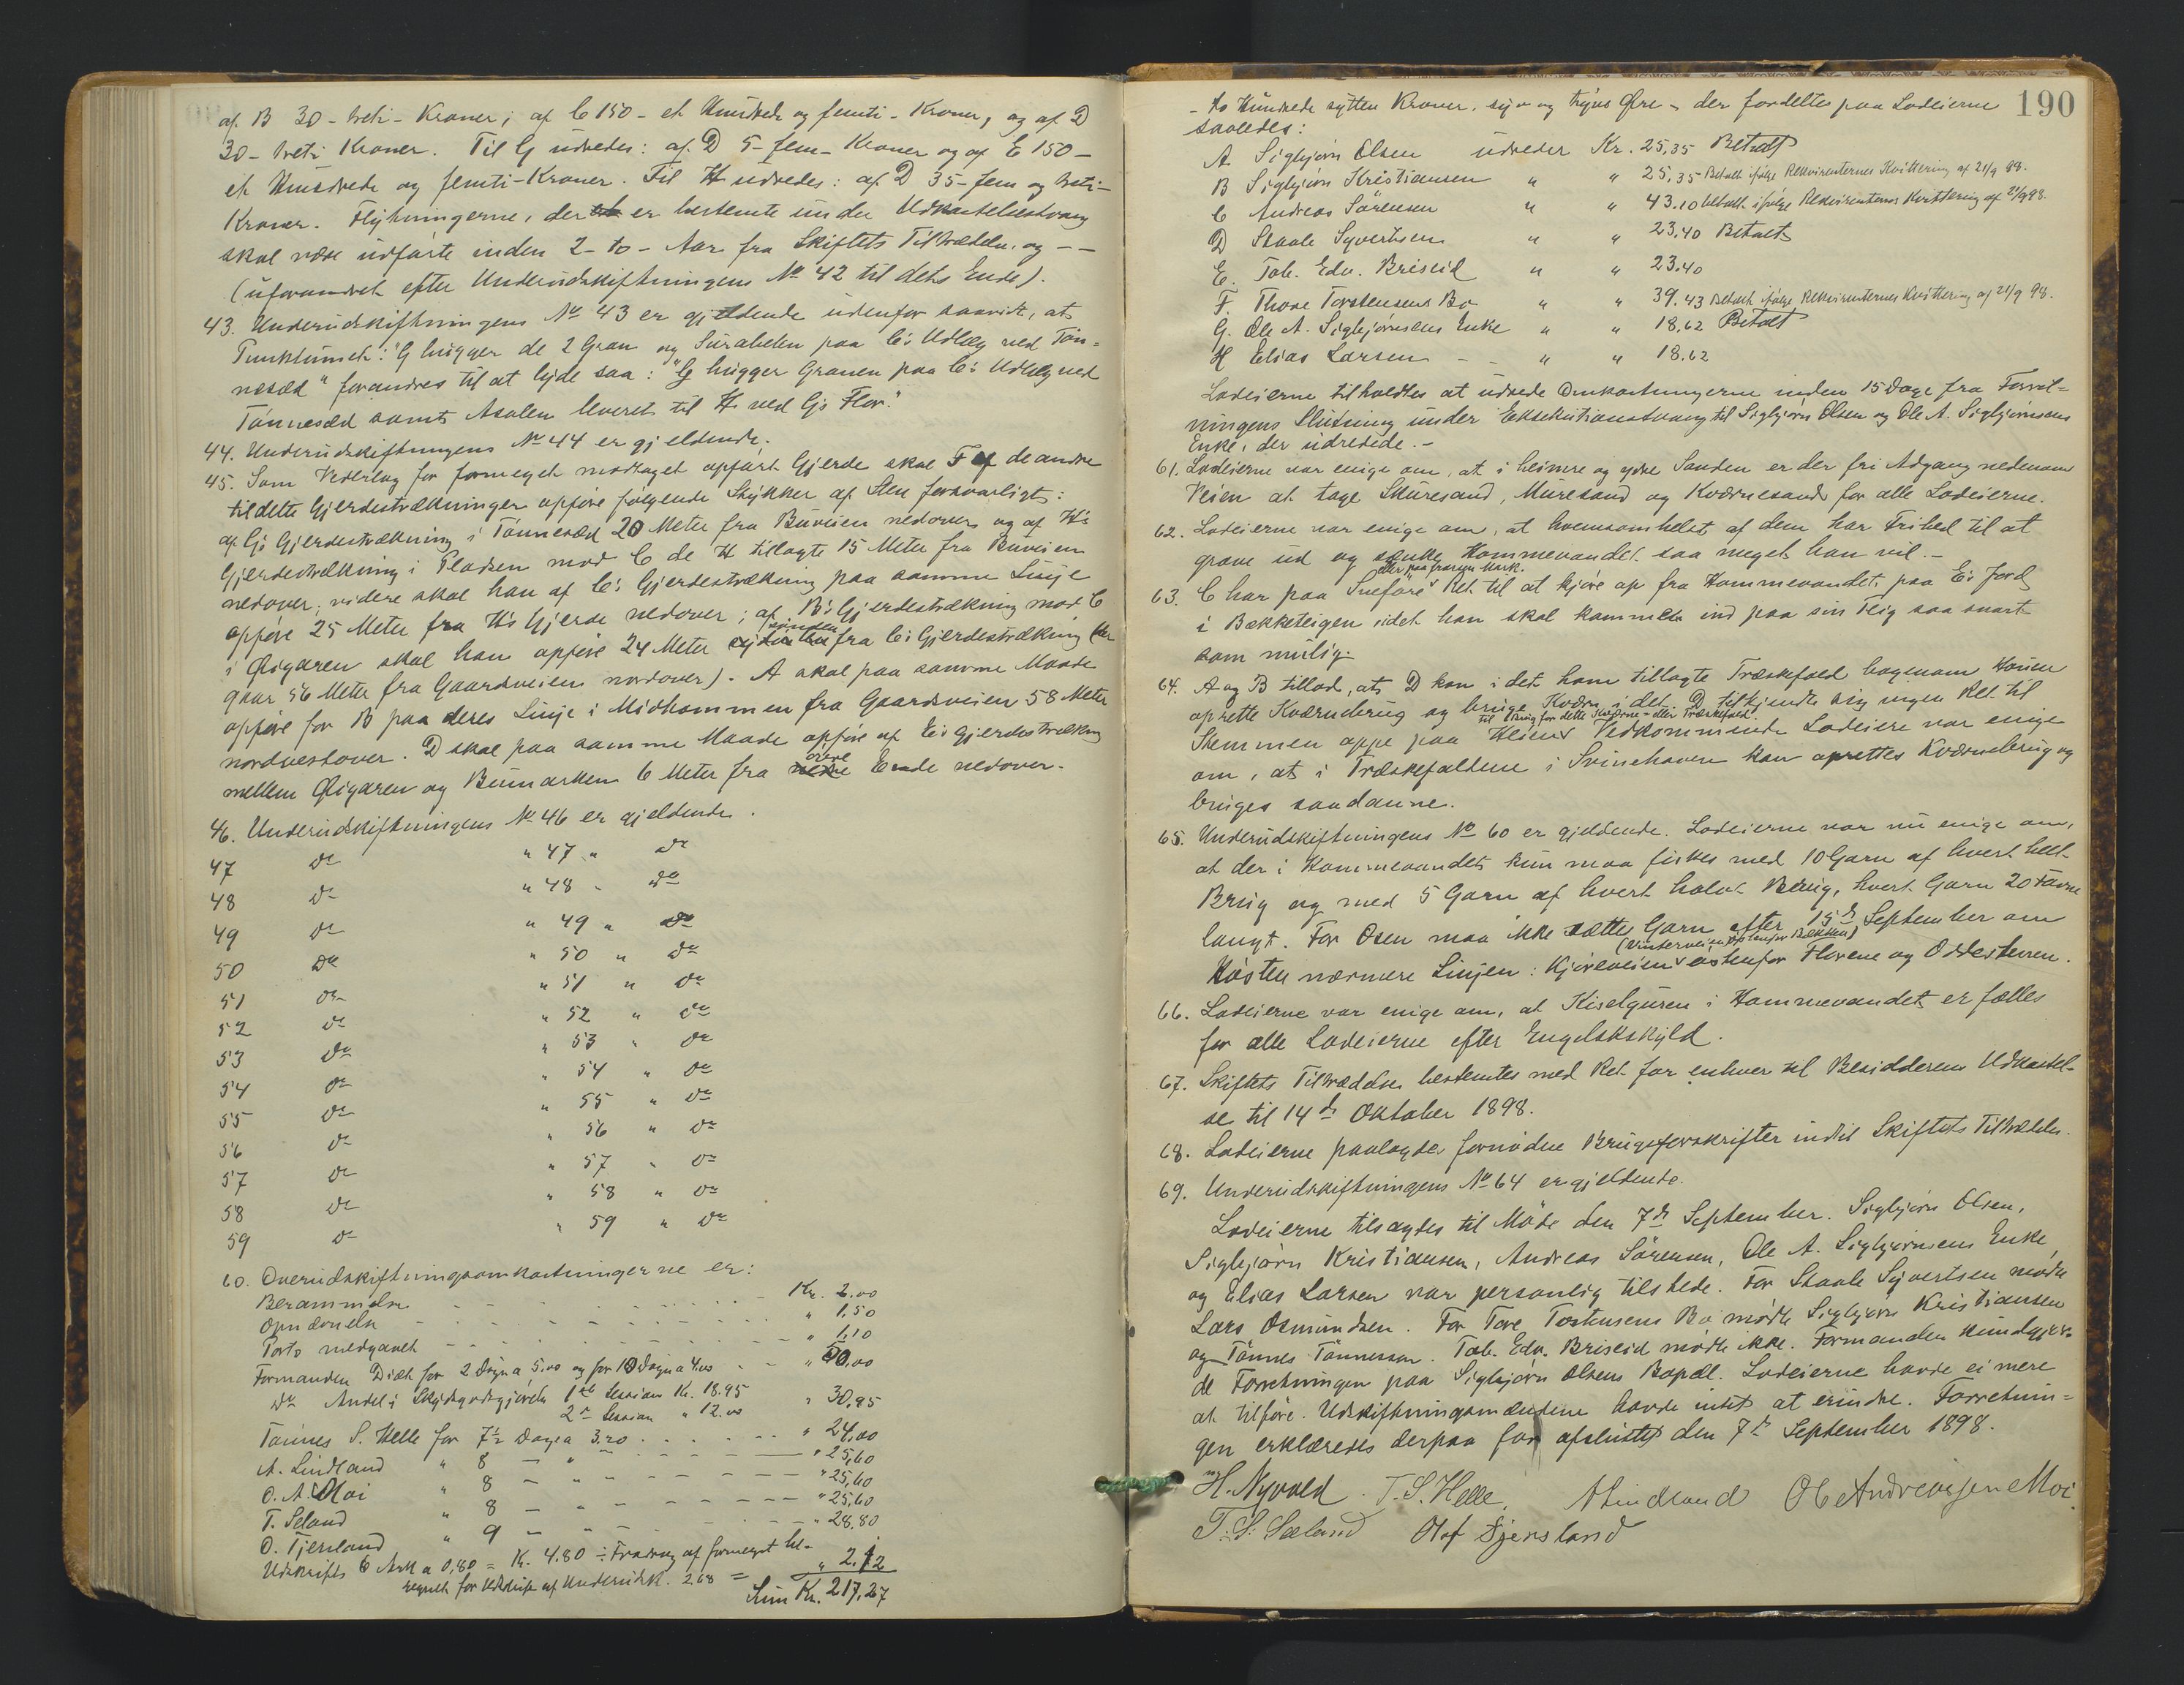 af B 30 - treti - Kroner; af C 150 - et Hundrede og femti - Kroner, og af D
30 - treti Kroner. Til G udredes: af D 5 - fem - Kroner og af E 150 -
et Hundrede og femti - Kroner. Til H udredes: af D 35 - fem og treti -
Kroner. Flytningerne, der er bestemte under Udkastelsestvang
skal være udførte inden 2 - to - Aar fra Skiftets Tiltrædelse, og - -
(uforandret efter Underudskiftningens No 42 til dets Ende).
43. Underudskiftningens No 43 er gjeldende udenfor saavidt, at
Punktumet: "G hugger de 2 Gran og Surabelen paa C's Udlæg ved Tøn=
nesæd" forandres til at lyde saa: "G hugger Granen paa C's Udlæg ved
Tønnesæd samt Asalen leveret til H ved G's Flor."
44. Underudskiftningens No 44 er gjeldende.
45. Som Vederlag for formeget modtaget opført Gjerde skal F af de andre
til dette Gjerdestrækninger opføre følgende Stykker af Sten forsvarligt:
af G's Gjerdestrækning i Tønnesæd 20 Meter fra Buveien nedover og af H's
Gjerdestrækning i Pladsen mod C de H tillagte 15 Meter fra Buveien
nedover; videre skal han af C's Gjerdestrækning paa samme Linje
opføre 25 Meter fra H's Gjerde nedover; af B's Gjerdestrækning mod C
i Øigaren skal han opføre 24 Meter sønden fra C's Gjerdestrækning (der
gaar 56 Meter fra Gaardsveien nordover). A skal paa samme Maade
opføre for B paa deres Linje i Midhommen fra Gaardsveien 58 Meter
nordvestover. D skal paa samme Maade opføre af E's Gjerdestrækning
mellem Øigaren og Bumarken 6 Meter fra øvre Ende nedover.
46. Underudskiftningens No 46 er gjeldende.
47 do " 47 " do
48 do " 48 " do
49 do " 49 " do
50 do " 50 " do
51 do " 51 " do
52 do " 52 " do
53 do " 53 " do
54 do " 54 " do
55 do " 55 " do
56 do " 56 " do
57 do " 57 " do
58 do " 58 " do
59 do " 59 " do
60. Overudskiftningsomkostningerne er:
Berammelse - - - Kr. 2.00
Opnævnelse - - - " 1.50
Porto medgaaet - - - " 1.10
Formanden Diæt for 2 Døgn a 5.00 og for 10 Døgn a 4.00 - - " 50.00
do Andel i Skydsgodtgjørelse 1ste Session Kr. 18.95
2den Session " 12.00 " 30.95
Tønnes S. Helle for 7½ Dage a 3.20 - - - " 24.00
A. Lindland " 8 - " - - - " 25.60
O. A. Moi " 8 - " - - - " 25.60
T. Seland " 8 - " - - - " 25.60
O. Tjersland " 9 - " - - - " 28.80
Udskrifts 6 Ark a 0,80 = Kr. 4.80 ÷ Fradrag af formeget be-
regnet for Udskrift af Underudsk. 2.68 = " 2.12
Sum Kr. 217.27
190
- to Hundrede sytten Kroner, syv og tyve Øre - der fordeltes paa Lodeierne
saaledes:
A Sigbjørn Olsen udreder Kr. 25,35 Betalt
B Sigbjørn Kristiansen " " 25,35 Betalt ifølge Rekvirenternes Kvittering af 21/9 98.
C Andreas Sørensen " " 43.10 betalt ifølge Rekvirenternes Kvittering af 21/9 98.
D Staale Syvertsen " " 23.40 Betalt
E. Tob. Edv. Briseid " " 23.40
F. Thore Torstensens Bo " " 39.43 Betalt ifølge Rekvirenternes Kvittering af 21/9 98.
G. Ole A. Sigbjørnsens Enke " " 18.62 Betalt
H Elias Larsen - - " " 18.62
Lodeierne tilholdtes at udrede Omkostningerne inden 15 Dage fra Forret=
ningens Slutning under Eksekutionstvang til Sigbjørn Olsen og Ole A. Sigbjørnsens
Enke, der udredede. -
61. Lodeierne var enige om, at i heimre og ydre Sanden er der fri Adgang nedenom
Veien at tage Skuresand, Muresand og Kværnesand for alle Lodeierne.
62. Lodeierne var enige om, at hvemsomhelst af dem har Frihed til at
grave ud og sænke Hommevandet saa meget han vil. -
eller paa frosen Mark.
63. C har paa Sneføre Ret til at kjøre op fra Hommevandet, paa E's Jord
i Bækketeigen, idet han skal komme ind paa sin Teig saa snart
som mulig.
64. A og B tillod, at D kan i det ham tillagte Træskefald bagenom Houen
oprette Kværnebrug og bruge Kværn i det. D tilkjendte sig ingen Ret til
til Brug for dette Kværne- eller Træskefald.
Stemmen oppe paa Heien Vedkommende Lodeiere var enige
om, at i Træskefaldene i Svinehaven kan oprettes Kværnebrug og
bruges saadanne.
65. Underudskiftningens No 60 er gjeldende. Lodeierne var nu enige om,
at der i Hommevandet kun maa fiskes med 10 Garn af hvert helt
Brug og med 5 Garn af hvert halvt Brug, hvert Garn 20 Favne
langt. For Osen maa ikke sættes Garn efter 15de September om
(Vinterveien østenfor Bækken)
Høsten nærmere Linjen: Kjøreveien østenfor Florene og Oddestenen.
66. Lodeierne var enige om, at Kiselguren i Hommevandet er fælles
for alle Lodeierne efter Engelskskyld.
67. Skiftets Tiltrædelse bestemtes med Ret for enhver til Besidderens Udkastel-
se til 14de Oktober 1898.
68. Lodeierne paalagdes fornødne Brugsforskrifter indtil Skiftets Tiltrædelse.
69. Underudskiftningens No 64 er gjeldende.
Lodeierne tilsagdes til Møde den 7de September. Sigbjørn Olsen,
Sigbjørn Kristiansen, Andreas Sørensen, Ole A. Sigbjørnsens Enke,
og Elias Larsen var personlig tilstede. For Staale Syvertsen mødte
Lars Osmundsen. For Tore Torstensens Bo mødte Sigbjørn Kristiansen
og Tønnes Tønnessen. Tob. Edv. Briseid mødte ikke. Formanden kundgjor=
de Forretningen paa Sigbjørn Olsens Bopæl. Lodeierne havde ei mere
at tilføre. Udskiftningsmændene havde intet at erindre. Forretnin=
gen erklæredes derpaa for afsluttet den 7de September 1898.
H. Nyvold T. S. Helle. A Lindland Ole Andreassen Moi
T. S. Sæland Olaf Tjersland